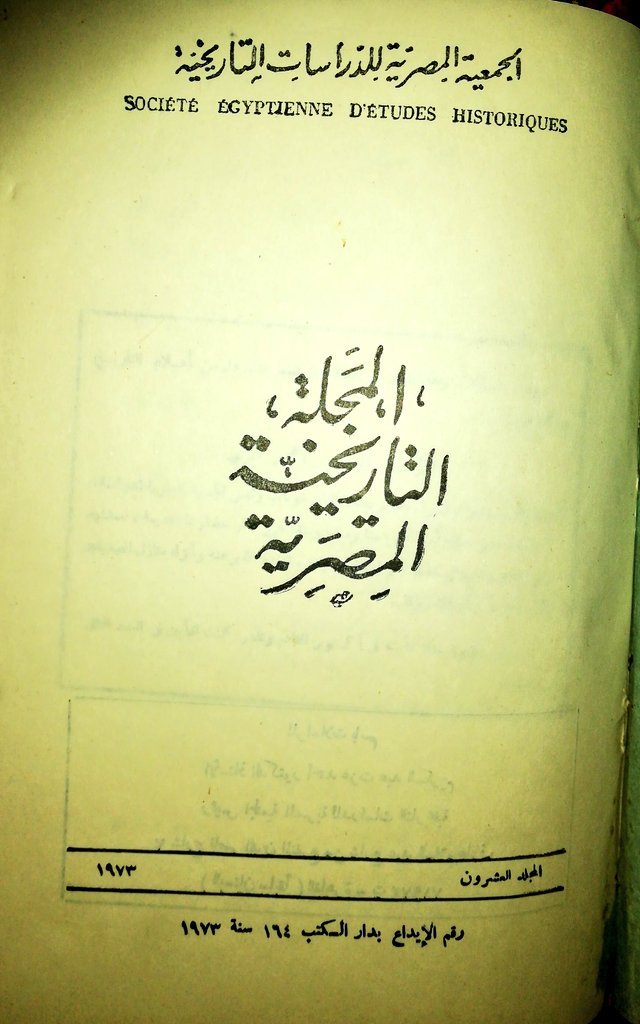 الجمعية المصرية للدراسات التاريخية
SOCIÉTÉ ÉGYPTIENNE D'ÉTUDES HISTORIQUES
المجلة
التاريخية
المصرية
المجلد العشرون ١٩٧٣
رقم الإيداع بدار الكتب ١٦٤ سنة ١٩٧٣